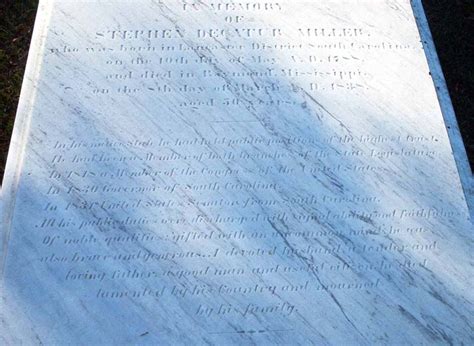 IN MEMORY
OF
STEPHEN DECATUR MILLER,
who was born in Lancaster District South Carolina,
on the 10th day of May A.D. 1788,
and died in Raymond, Mississippi,
on the 8th day of March A.D. 1838,
aged 50 years.
In his native State he had held public positions of the highest trust.
He had been a Member of both branches of the state Legislature
In 1818 a Member of the Congress of the United States
In 1830 Governor of South Carolina.
In 1831 United States Senator from South Carolina.
All his public duties were discharged with signal ability and faithfulness
Of noble qualities, gifted with an uncommon mind, he was
also brave and generous. A devoted husband, a tender and
loving father, a good man and useful citizen, he died
lamented by his Country and mourned
by his family.